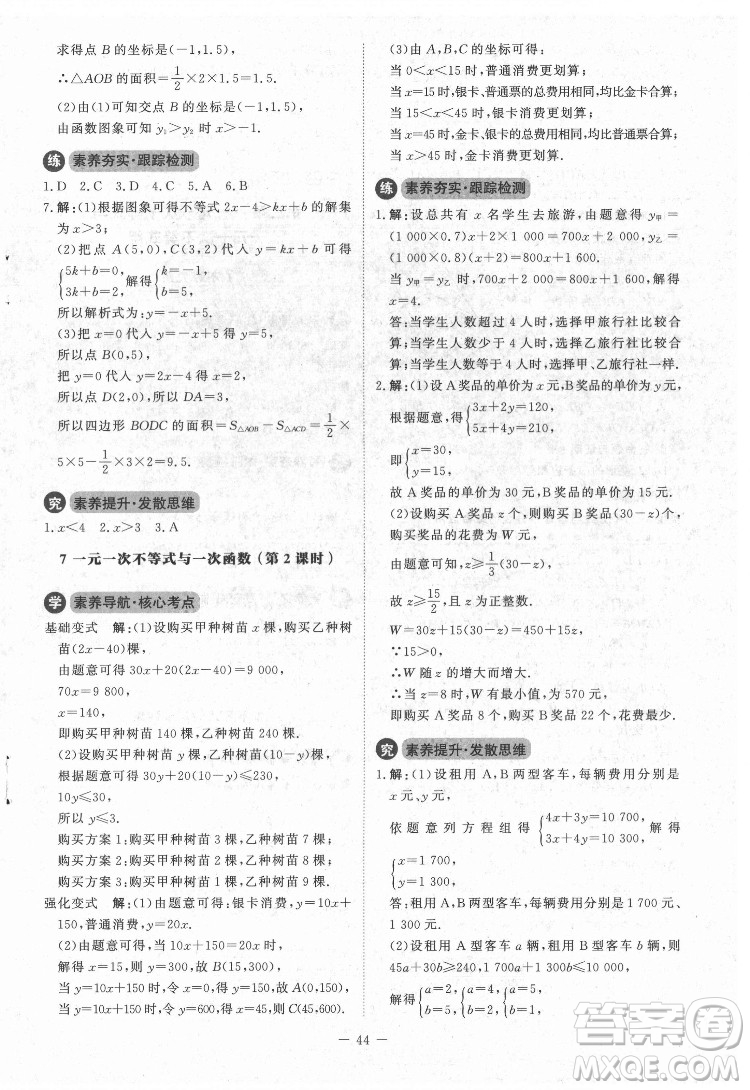 求得点 B 的坐标是(−1,1.5),
∴△AOB 的面积=1/2×2×1.5=1.5.
(2)由(1)可知交点 B 的坐标是(−1,1.5),
由函数图象可知 y₁>y₂ 时 x>−1.
练 素养夯实·跟踪检测
1.D 2.C 3.D 4.C 5.A 6.B
7.解:(1)根据图象可得不等式 2x−4>kx+b 的解集
为:x>3;
(2)把点 A(5,0),C(3,2)代入 y=kx+b 可得
{5k+b=0, 3k+b=2, 解得 {k=−1, b=5,
所以解析式为:y=−x+5;
(3)把 x=0 代入 y=−x+5 得:y=5,
所以点 B(0,5),
把 y=0 代入 y=2x−4 得:x=2,
所以点 D(2,0),所以 DA=3,
所以四边形 BODC 的面积=S△AOB−S△ACD=1/2×
5×5−1/2×3×2=9.5.
究 素养提升·发散思维
1.x<4 2.x>3 3.A
7 一元一次不等式与一次函数(第 2 课时)
学 素养导航·核心考点
基础变式 解:(1)设购买甲种树苗 x 棵,购买乙种树
苗(2x−40)棵,
由题意可得 30x+20(2x−40)=9 000,
70x=9 800,
x=140,
即购买甲种树苗 140 棵,乙种树苗 240 棵.
(2)设购买甲种树苗 y 棵,乙种树苗(10−y)棵,
根据题意可得 30y+20(10−y)≤230,
10y≤30,
所以 y≤3.
购买方案 1:购买甲种树苗 3 棵,乙种树苗 7 棵;
购买方案 2:购买甲种树苗 2 棵,乙种树苗 8 棵;
购买方案 3:购买甲种树苗 1 棵,乙种树苗 9 棵;
强化变式 解:(1)由题意可得:银卡消费,y=10x+
150,普通消费,y=20x.
(2)由题意可得当 10x+150=20x,
解得 x=15,则 y=300,故 B(15,300),
当 y=10x+150,x=0 时,y=150,故 A(0,150),
当 y=10x+150,y=600,得 x=45,故 C(45,600).
(3)由 A,B,C 的坐标可得:
当 0<x<15 时,普通消费更划算;
当 x=15 时,银卡、普通票的总费用相同,
均比金卡合算;
当 15<x<45 时,银卡消费更划算;
当 x=45 时,金卡、银卡的总费用相同,
均比普通票合算;
当 x>45 时,金卡消费更划算.
练 素养夯实·跟踪检测
1.解:设总共有 x 名学生去旅游,由题意可得 y甲=
(1 000×0.7)x+1 000×2=700x+2 000,y乙=
(1 000×0.8)x+(1 000×0.8)×2=800x+1 600.
当 y甲=y乙 时,700x+2 000=800x+1 600,解得
x=4.
答:当学生人数超过 4 人时,选择甲旅行社比较合
算;当学生人数少于 4 人时,选择乙旅行社比较合
算;当学生人数等于 4 人时,甲、乙旅行社一样.
2.解:(1)设 A 奖品的单价为 x 元,B 奖品的单价为 y 元,
根据题意,得 {3x+2y=120, 5x+4y=210,
即 {x=30, y=15,
故 A 奖品的单价为 30 元,B 奖品的单价为 15 元.
(2)设购买 A 奖品 z 个,则购买 B 奖品为(30−z)个,
购买奖品的花费为 W 元,
由题意可知,z≥1/3(30−z),
故 z≥15/2,且 z 为正整数.
W=30z+15(30−z)=450+15z,
∵15>0,
∴W 随 z 的增大而增大.
∴当 z=8 时,W 有最小值,为 570 元,
即购买 A 奖品 8 个,购买 B 奖品 22 个,花费最少.
究 素养提升·发散思维
1.解:(1)设租用 A,B 两型客车,每辆费用分别是
x 元、y 元,
依题意列方程组得 {4x+3y=10 700, 3x+4y=10 300, 解得
{x=1 700, y=1 300.
答:租用 A,B 两型客车,每辆费用分别是 1 700 元、
1 300 元.
(2)设租用 A 型客车 a 辆,租用 B 型客车 b 辆,
45a+30b≥240,1 700a+1 300b≤10 000,
解得 {a=2, b=5, {a=4, b=2, {a=5, b=1,
— 44 —
答案卷
MXQE.COM